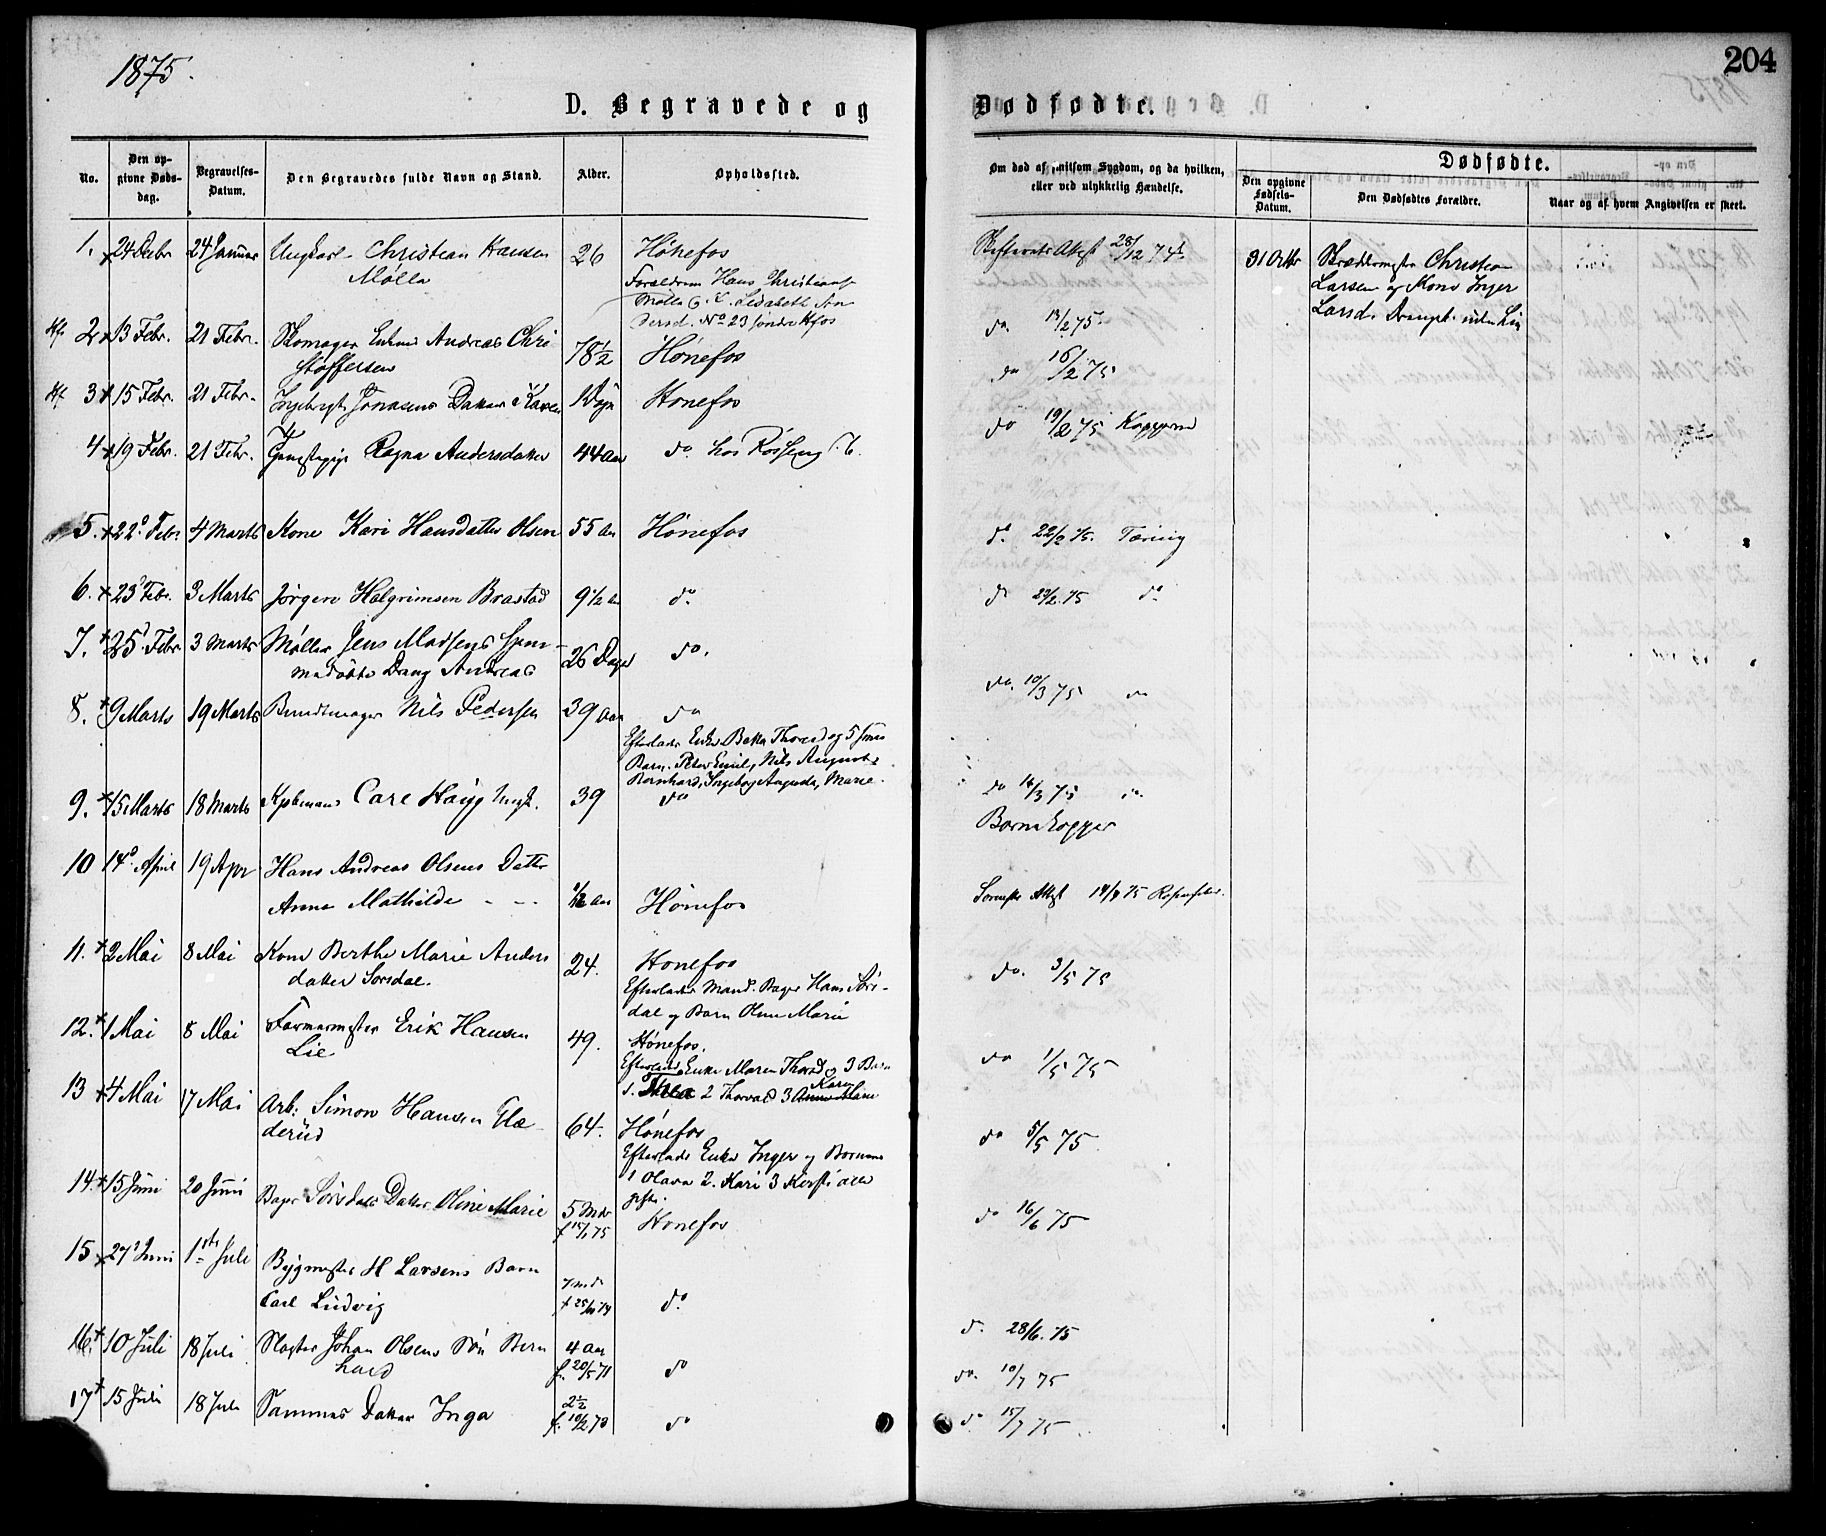 1875.
204
D. Begravede og
Dødfødte.
No.
Den opgivne Dødsdag.
Begravelses-Datum.
Den Begravedes fulde Navn og Stand.
Alder.
Opholdssted.
Om død af smitsom Sygdom, og da hvilken,
eller ved ulykkelig Hændelse.
Dødfødte.
Den opgivne Fødsels-Datum.
Den Dødfødtes Forældre.
Naar og af hvem Angivelsen er skeet.
1. 24 Decbr 24 Januar Ungkarl Christian Hansen 26 Hønefos
Mølla
Forældrene Hans Christians
Mølla
No 23 søndre Hfos
Skifterets Attest 28/12 74
31 Oktbr Skræddermester Christian
Larsen og Kone Inger
Larsd.
2 13 Febr. 21 Febr. Skomager Enkem Andreas Chri
stoffersen 78 1/2 Hønefos
do 13/2 75.
3 15 Febr. 21 Febr. Ingeborg Jonasens Datter Karen 1 Døgn Hønefos
do 16/2 75
4 19 Febr. 21 Febr. Tjenestepige Ragna Andersdatter 44 Aar do hos
do 19/2 75 Kopperne
5. 22 Febr. 4 Marts Kone Kari Hansdatter Olsen 55 Aar Hønefos
do 22/2 75. Tæring
6. 23 Febr. 3 Marts Jørgen Halgrimsen Brastad 9 1/2 do
do 23/2 75 do
7. 25 Febr. 3 Marts Møller Jens Madsens hjem-
medøbte Dreng Andreas 26 Dage do.
8. 9 Marts 19 Marts Bundtmager Nils Pedersen 39 Aar do
Efterlader Enke Thorsd og 5
Børn. Peter Emil, Nils August,
Bernhard, Ingeborg Augusta, Marie.
do. 10/3 75 do
9. 15 Marts 18 Marts Kjøbmand Carl Haug Ungk. 39 do
do 16/3 75 do.
Børnekopper
10 14 April 19 Apr Hans Andreas Olsens Datter
Anna Mathilde 1/2 Aar Hønefos
Sorenskr Attest 14/4 75
11. 2 Mai 8 Mai Kone Berthe Marie Anders
datter Sørsdal. 24. Hønefos
Efterlader Mand. Bager Hans Sørs-
dal og Barn Oline Marie
do. 3/5 75
12. 1 Mai 8 Mai Farmermester Erik Hansen
Lie 49. Hønefos.
Efterlader Enke Maren Thorsd og 3 Børn
1. Thea 2 Thorvald 3 Karen
do 1/5 75
13 4 Mai 17 Mai Arb: Simon Hansen Flæ-
derud 64. Hønefos
Efterlader Enke Inger og Børnene
1 Olava 2. Kari 3 Kirsti alle
gifte.
do 5/5 75
14. 15 Juni 20 Juni Bager Sørsdals Datter Oline Marie 5 Mdr
f 15/1 75 Hønefos
do 16/6 75
15 27 Juni 1ste Juli Bygmester H Larsens Barn
Carl Ludvig 7 md do.
d. 28/6. 75
16. 10 Juli 18 Juli Slagter Johan Olsens Søn Bern
hard 4 Aar
f. 20/5 71 do
do. 10/7 75
17 15 Juli 18 Juli Sammes Datter Inga 2 1/2
f. 10/2 73 do
do 15/7 75.